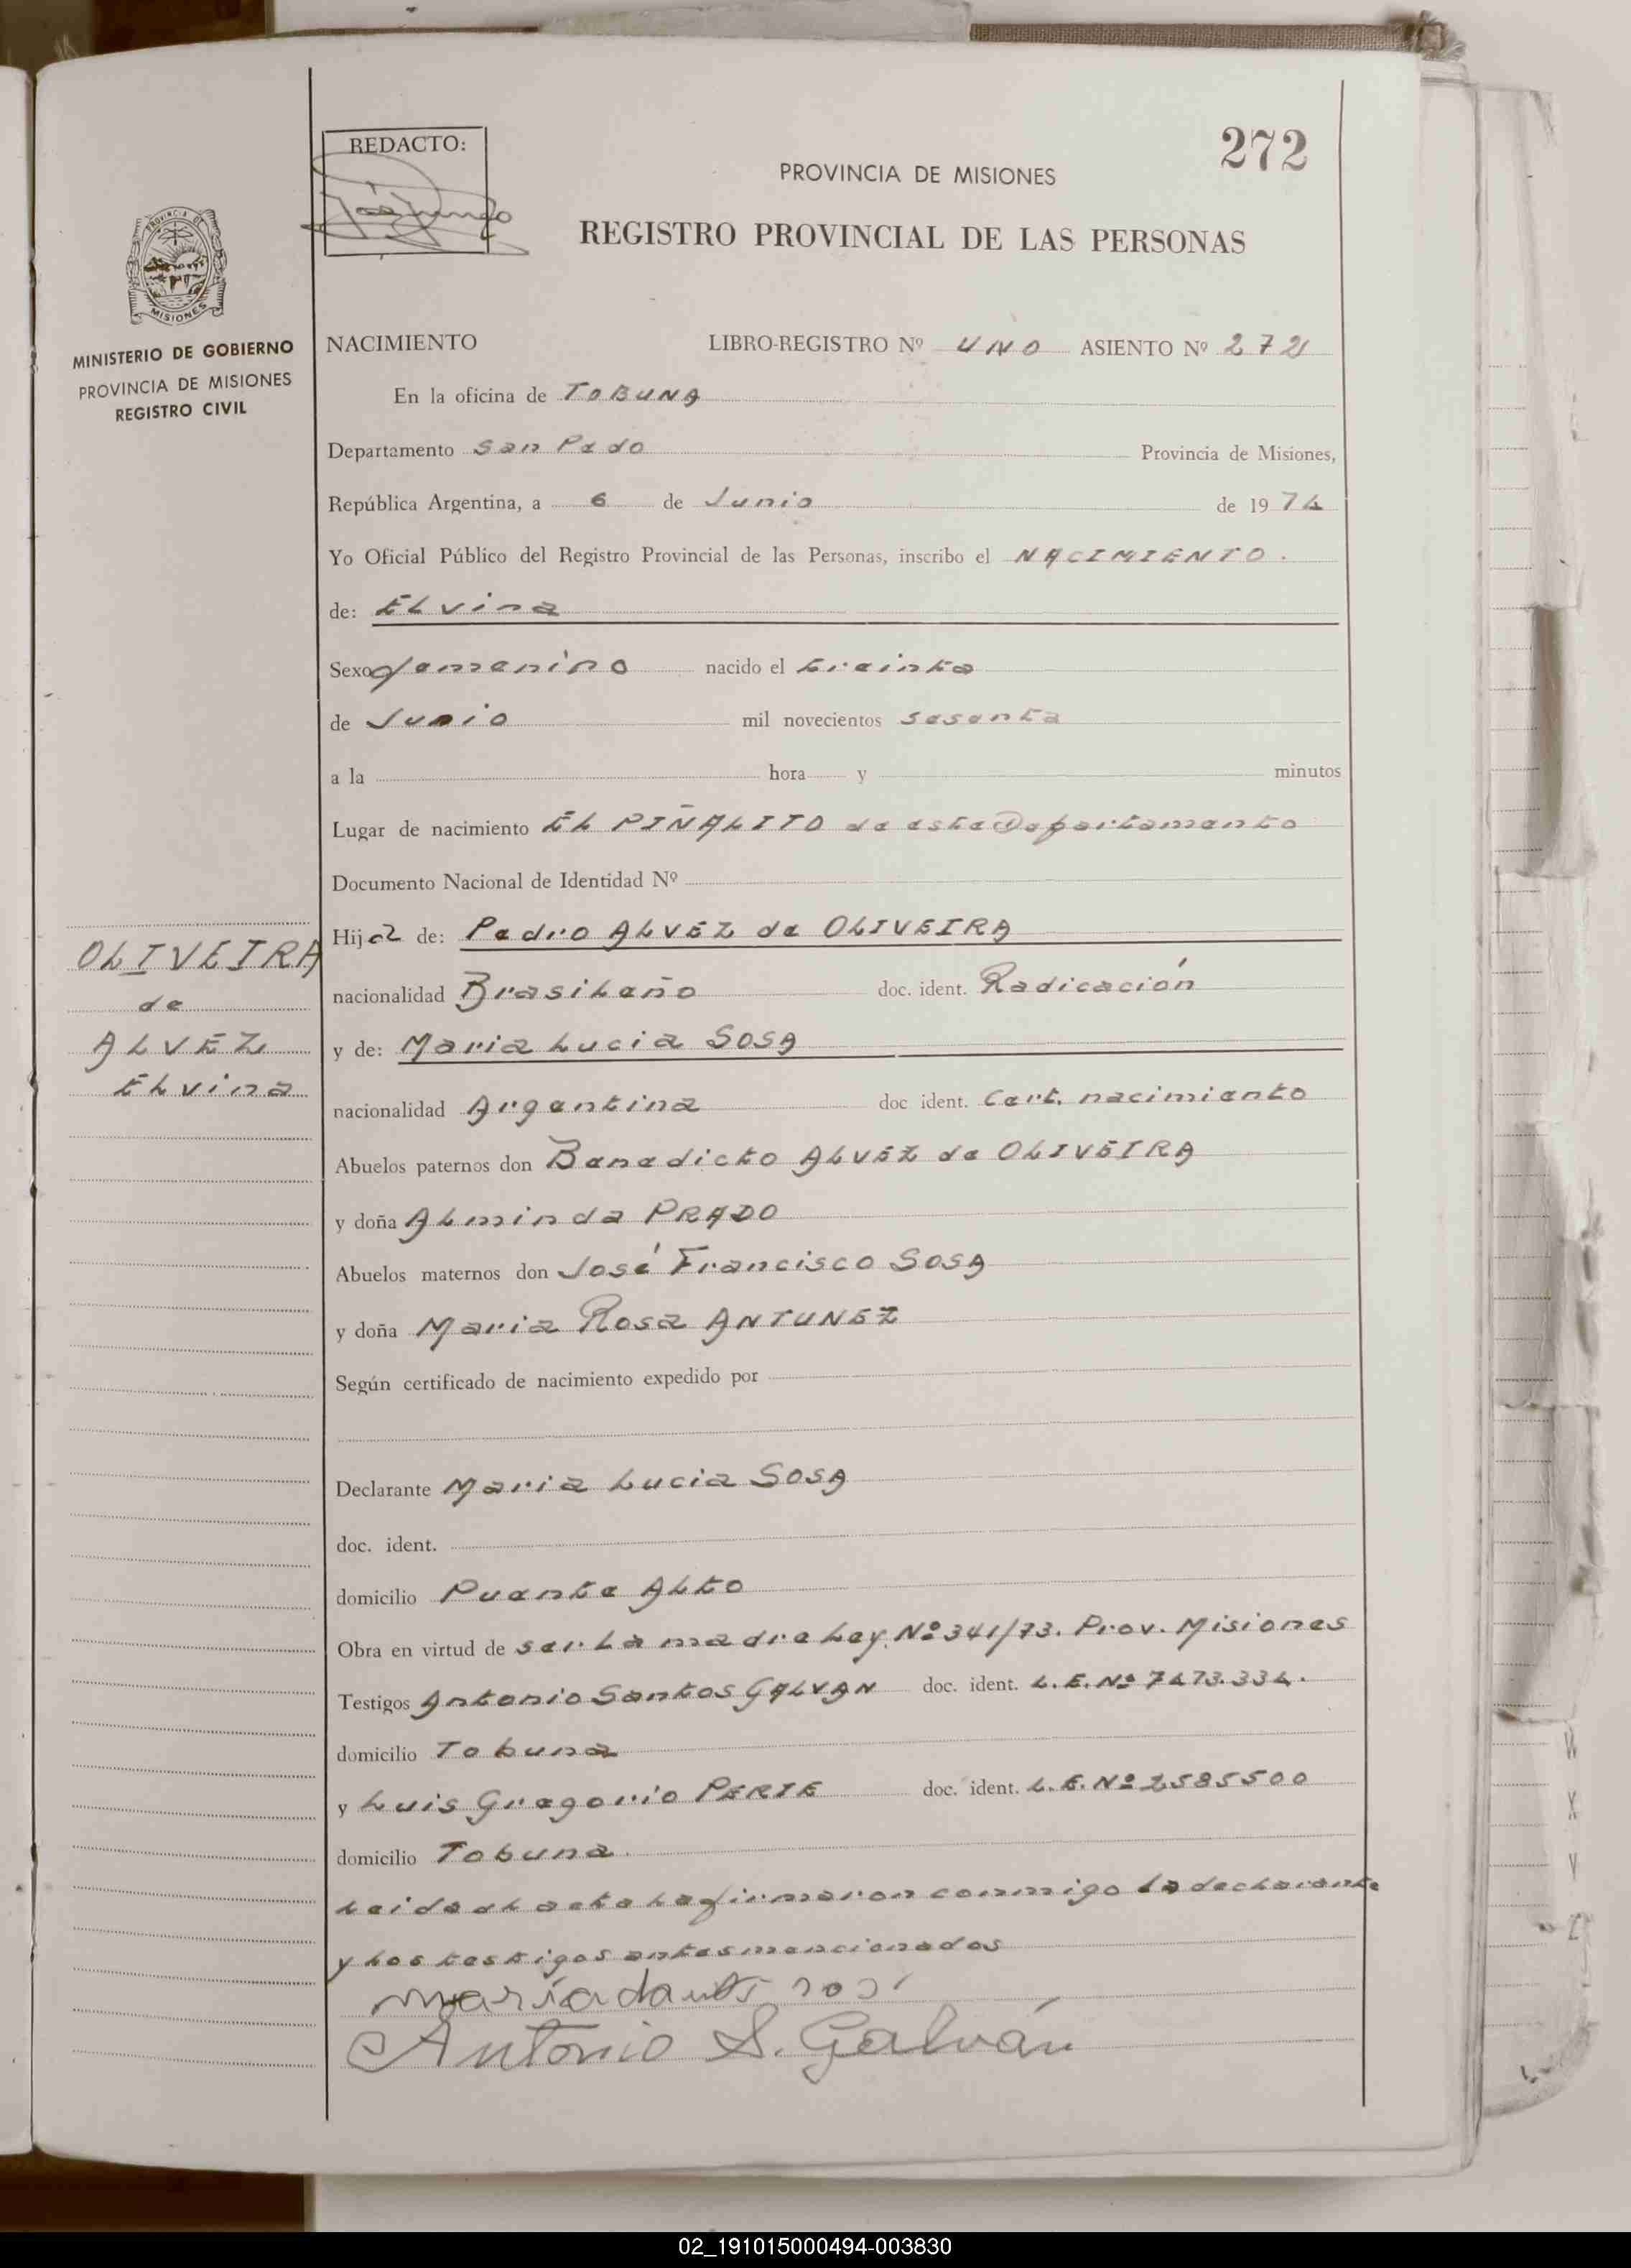 272
REDACTO:
PROVINCIA DE MISIONES
REGISTRO PROVINCIAL DE LAS PERSONAS
PROVINCIA DE
MISIONES
MINISTERIO DE GOBIERNO
PROVINCIA DE MISIONES
REGISTRO CIVIL
NACIMIENTO LIBRO-REGISTRO Nº UNO ASIENTO Nº 272
En la oficina de TOBUNA
Departamento San Pedo Provincia de Misiones,
República Argentina, a 6 de Junio de 1974
Yo Oficial Público del Registro Provincial de las Personas, inscribo el NACIMIENTO.
de: ELvina
Sexo femenino nacido el treinta
de Junio mil novecientos sesenta
a la hora y minutos
Lugar de nacimiento EL PIÑALITO de este Departamento
Documento Nacional de Identidad Nº
Hija de: Pedro ALVEZ de OLIVEIRA
OLIVEIRA
de
ALVEZ
ELvina
nacionalidad BrasiLeño doc. ident. Radicación
y de: Maria Lucia SOSA
nacionalidad Argentina doc ident. Cert. nacimiento
Abuelos paternos don Benedicto ALVEZ de OLIVEIRA
y doña ALminda PRADO
Abuelos maternos don José Francisco SOSA
y doña Maria Rosa ANTUNEZ
Según certificado de nacimiento expedido por
Declarante Maria Lucia SOSA
doc. ident.
domicilio Puente ALto
Obra en virtud de ser La madre Ley. Nº 341/73. Prov. Misiones
Testigos Antonio Santos GALVAN doc. ident. L.E. Nº 7473.334.
domicilio Tobuna
y Luis Gregorio PERIE doc. ident. L.E. Nº 2585500
domicilio Tobuna.
Leida eL acta La firmaron conmigo La decLarante
y Los testigos antes mencionados
Maria
Antonio S. Galván
W
X
Y
Z
02_191015000494-003830